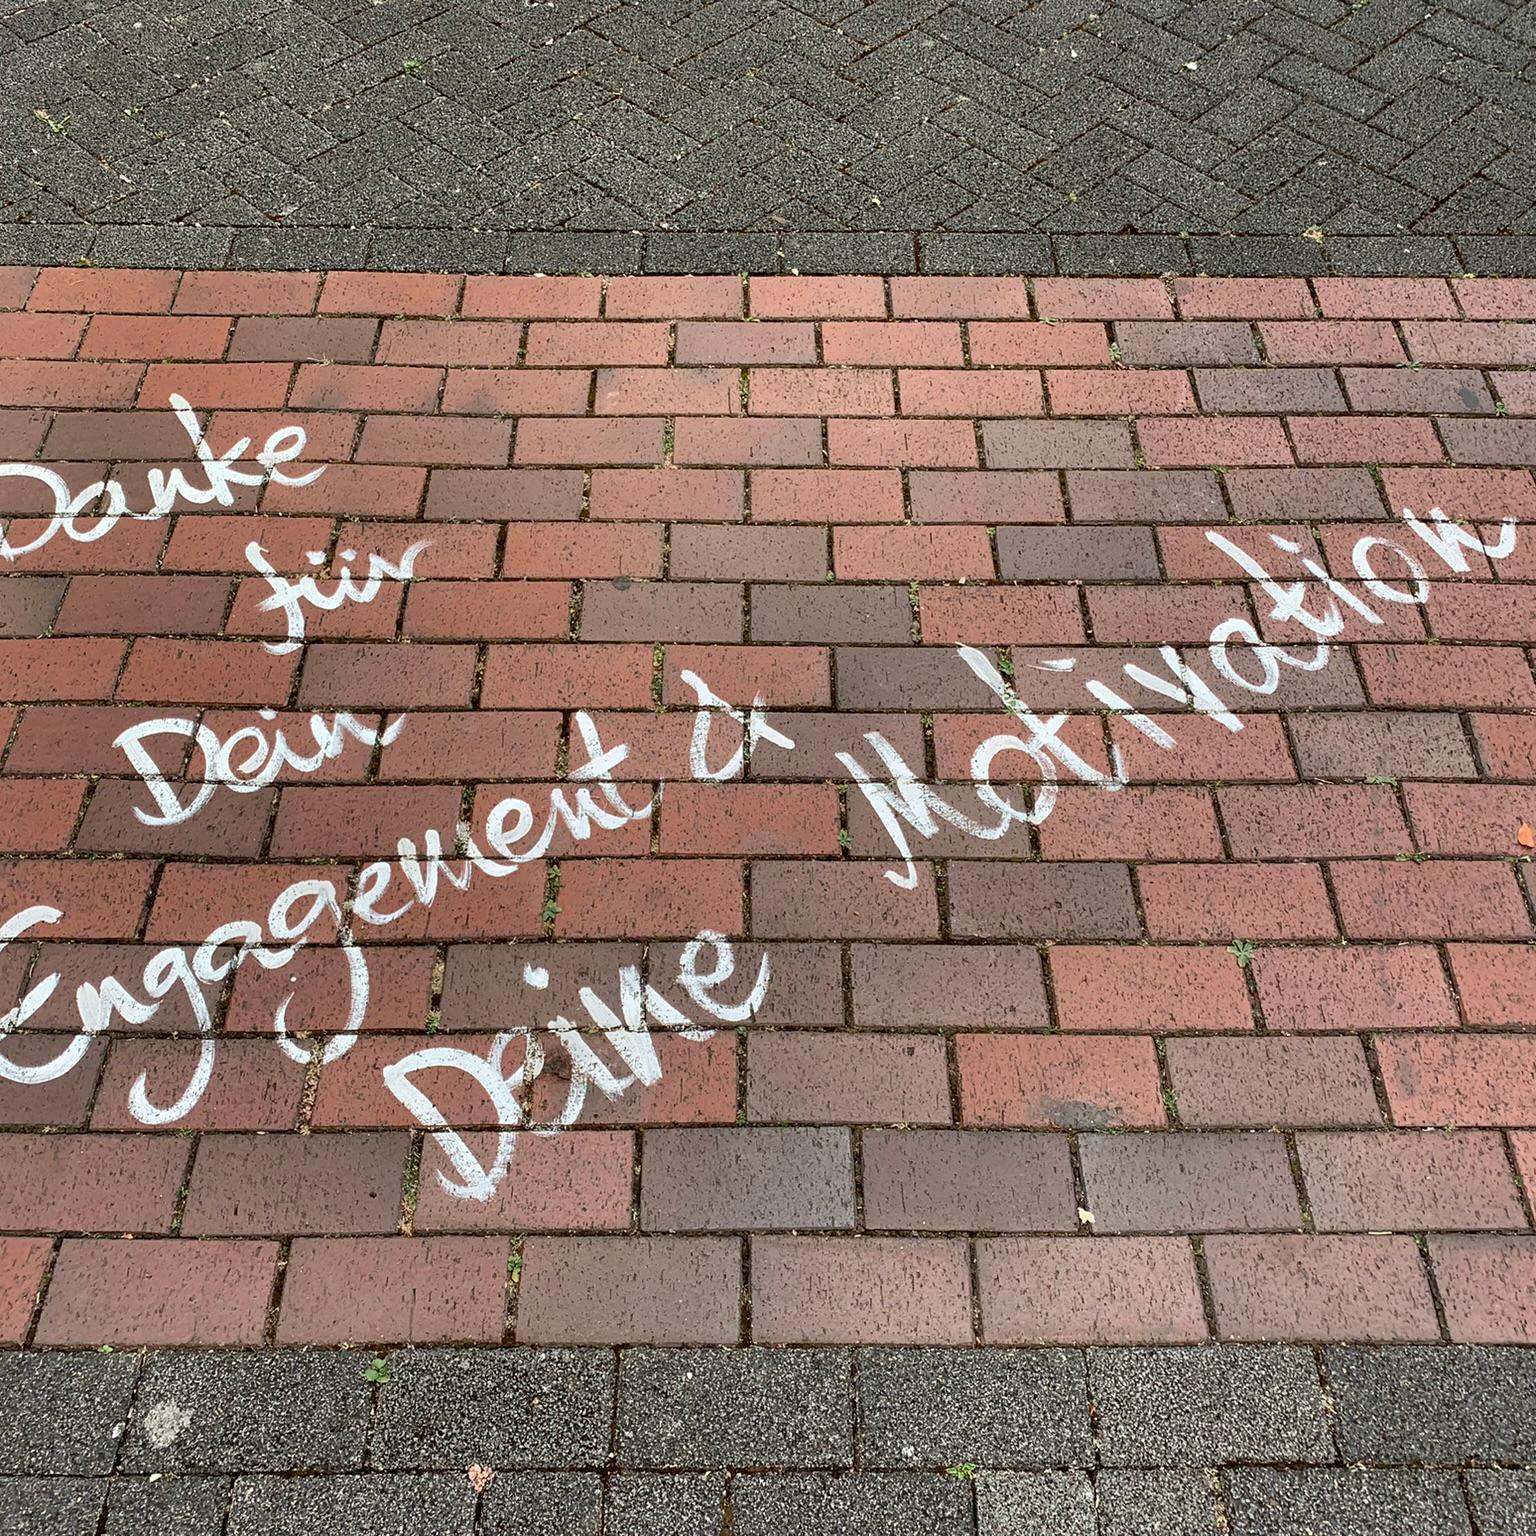 Danke
für
Dein
Engagement &
Deine
Motivation